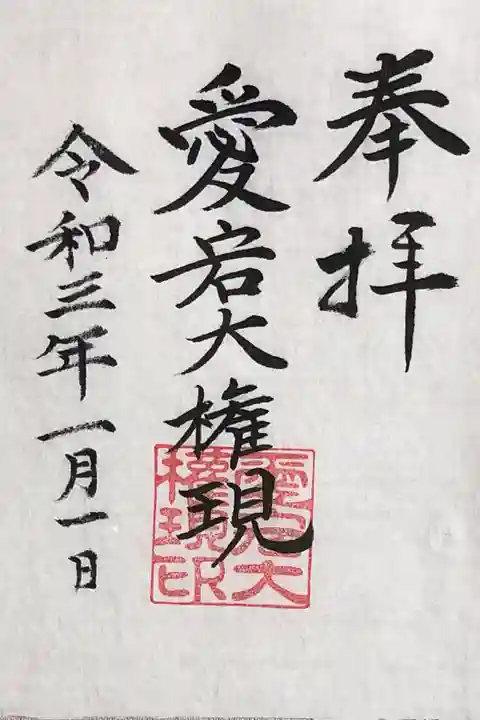 奉拝
愛宕大権現
令和三年一月一日
愛宕大
権現印